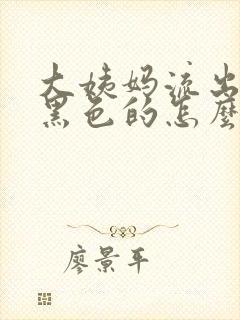 大姨妈流出
黑色的怎麼
廖景平